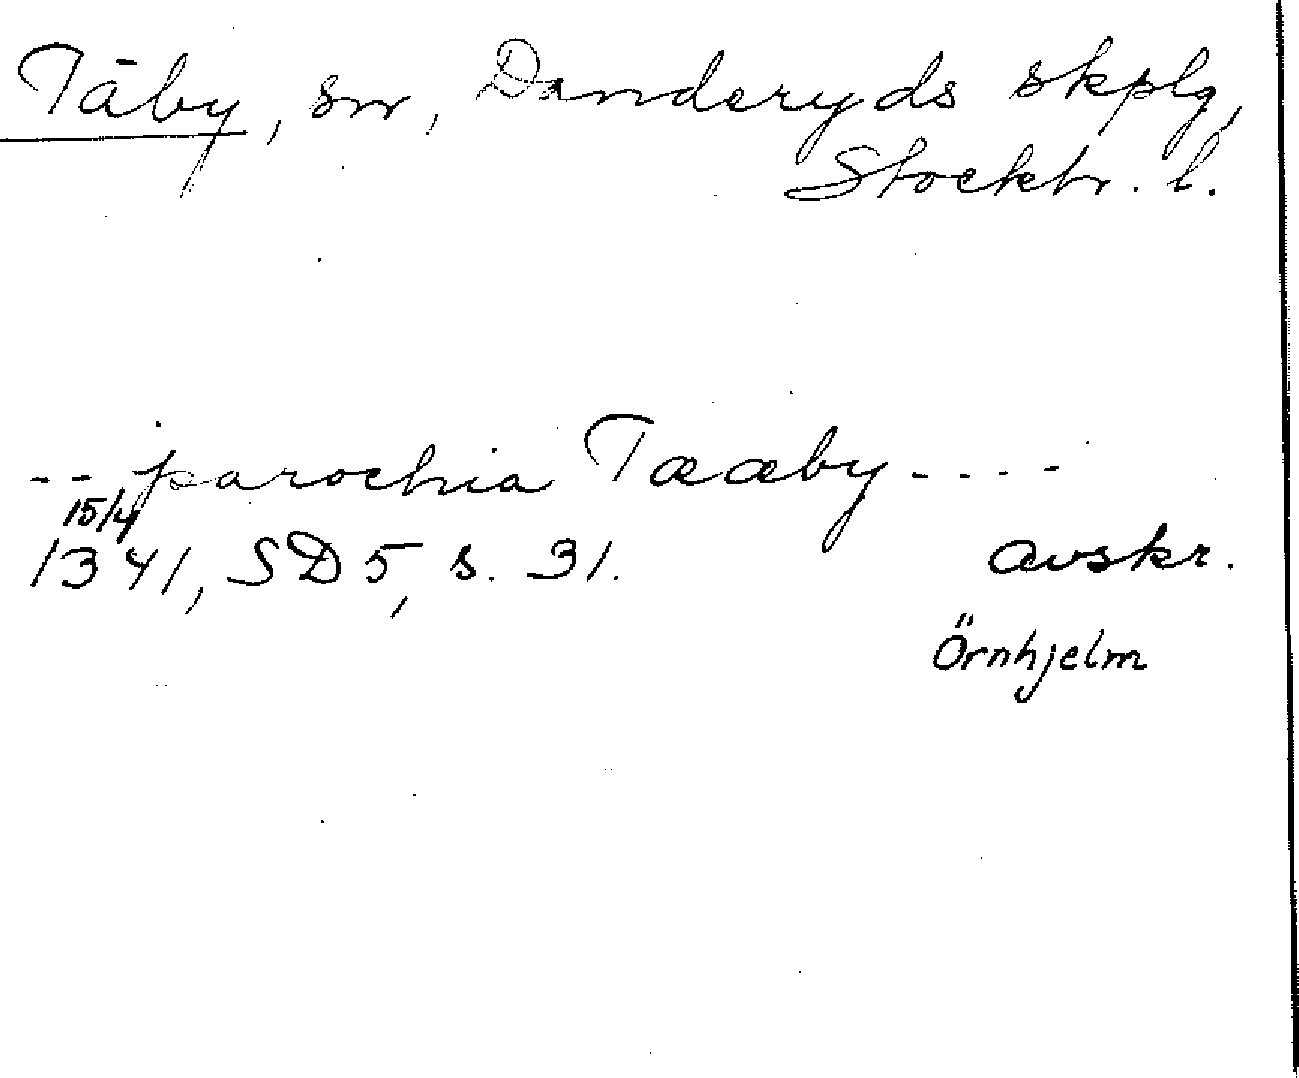 Täby, sn, Danderyds skplg,
Stockh. l.
-- parochia Tææby ----
15/4
1341, SD 5, s. 31. avskr.
Örnhjelm